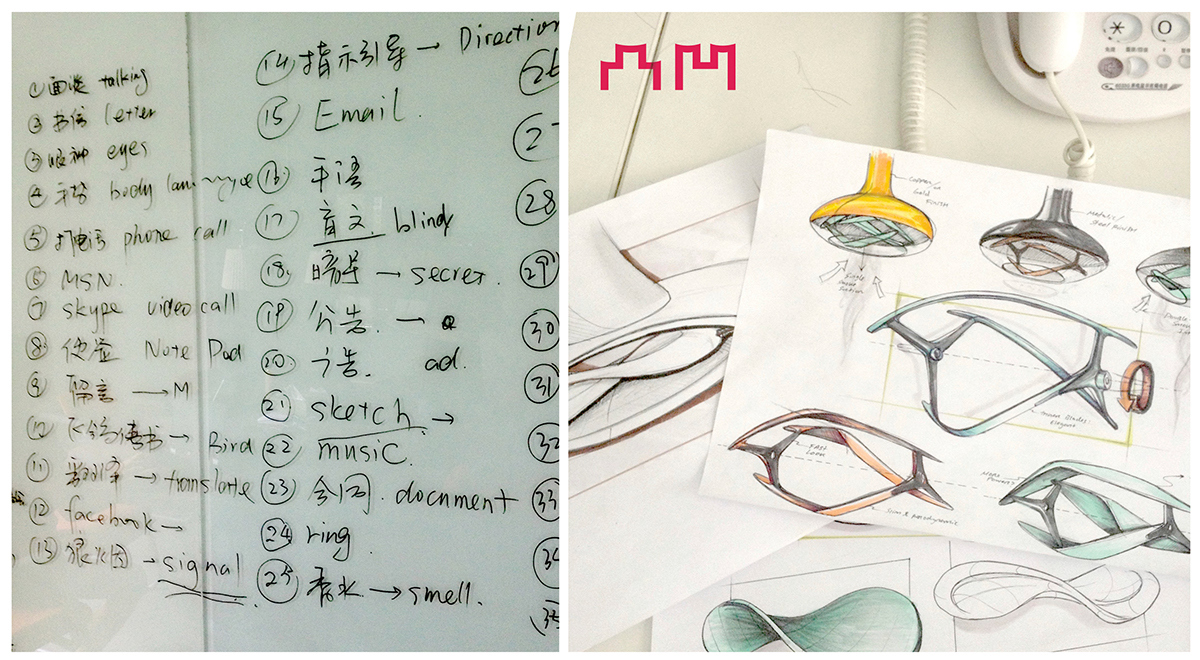 ① 面谈 talking
② 书信 letter
③ 眼神 eyes
④ body language
⑤ 打电话 phone call
⑥ MSN.
⑦ skype video call
⑧ Note Pad
⑨ 留言 → M
⑩ 飞鸽传书 → Bird
⑪ 翻译 → translate
⑫ facebook →
⑬ 狼烟 → signal
⑭ 指示引导 → Direction
⑮ Email.
⑯ 手语
⑰ 盲文. blind
⑱ 暗号 → secret.
⑲ 公告. →
⑳ 广告. ad.
㉑ sketch →
㉒ music.
㉓ 合同. document
㉔ ring.
㉕ 香水 → smell.
28
29
30
31
32
33
34
35
* O
Copper/
Gold
Finish
Metalic/
Steel Finish
Single
Round Blades
Elegant
Fast
Look
More
Powerful